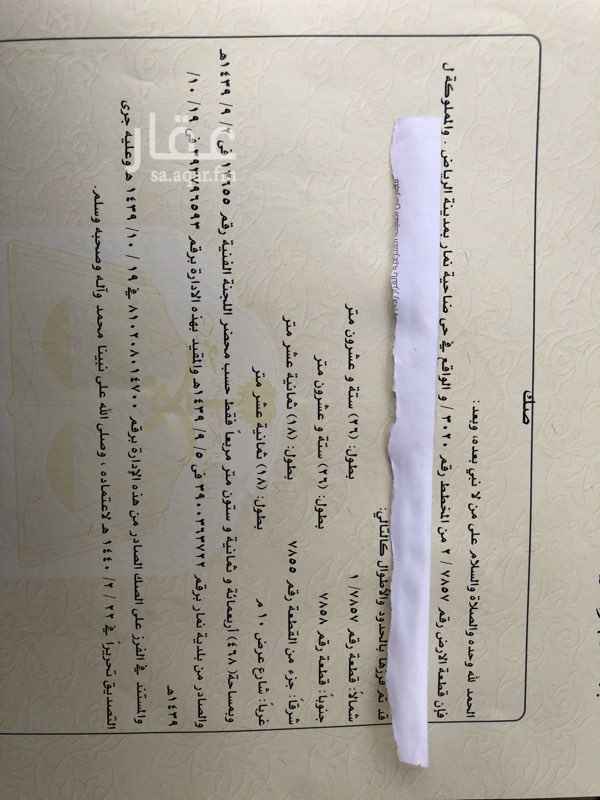 صك
الحمد لله وحده والصلاة والسلام على من لا نبي بعده، وبعد:
فإن قطعة الارض رقم ٧٨٥٧ / ٢ من المخطط رقم ٣٠٢٠ / و الواقع في حي ضاحية نمار بمدينة الرياض . والمملوكة ل
قد تم فرزها بالحدود والأطوال كالتالي:
شمالاً: قطعة رقم ٧٨٥٧/ ١ بطول: (٢٦) ستة و عشرون متر
جنوباً: قطعة رقم ٧٨٥٨ بطول: (٢٦) ستة و عشرون متر
شرقاً: جزء من القطعة رقم ٧٨٥٥ بطول: (١٨) ثمانية عشر متر
غرباً: شارع عرض ١٠ م بطول: (١٨) ثمانية عشر متر
وبمساحة (٤٦٨) أربعمائة و ثمانية و ستون متر مربعاً فقط حسب محضر اللجنة الفنية رقم في ٦/ ٩/ ١٤٣٩هـ
والصادر من بلدية نمار برقم ٣٩٠٠٣٦٣٧٢٢ في ٥/ ٩/ ١٤٣٩هـ والمقيد بهذه الادارة برقم في ١٩/ ١٠/
١٤٣٩هـ
والمستند في الفرز على الصك الصادر من هذه الإدارة برقم ٨١٠٢٠٨٠١٤٧٠٠ في ١٩ / ١٠ / ١٤٣٩ هـ وعليه جرى
التصديق تحريراً في ٢٢ / ٢/ ١٤٤٠ هـ لاعتماده ، وصلى الله على نبينا محمد وآله وصحبه وسلم.
عقار
sa.aqar.fm